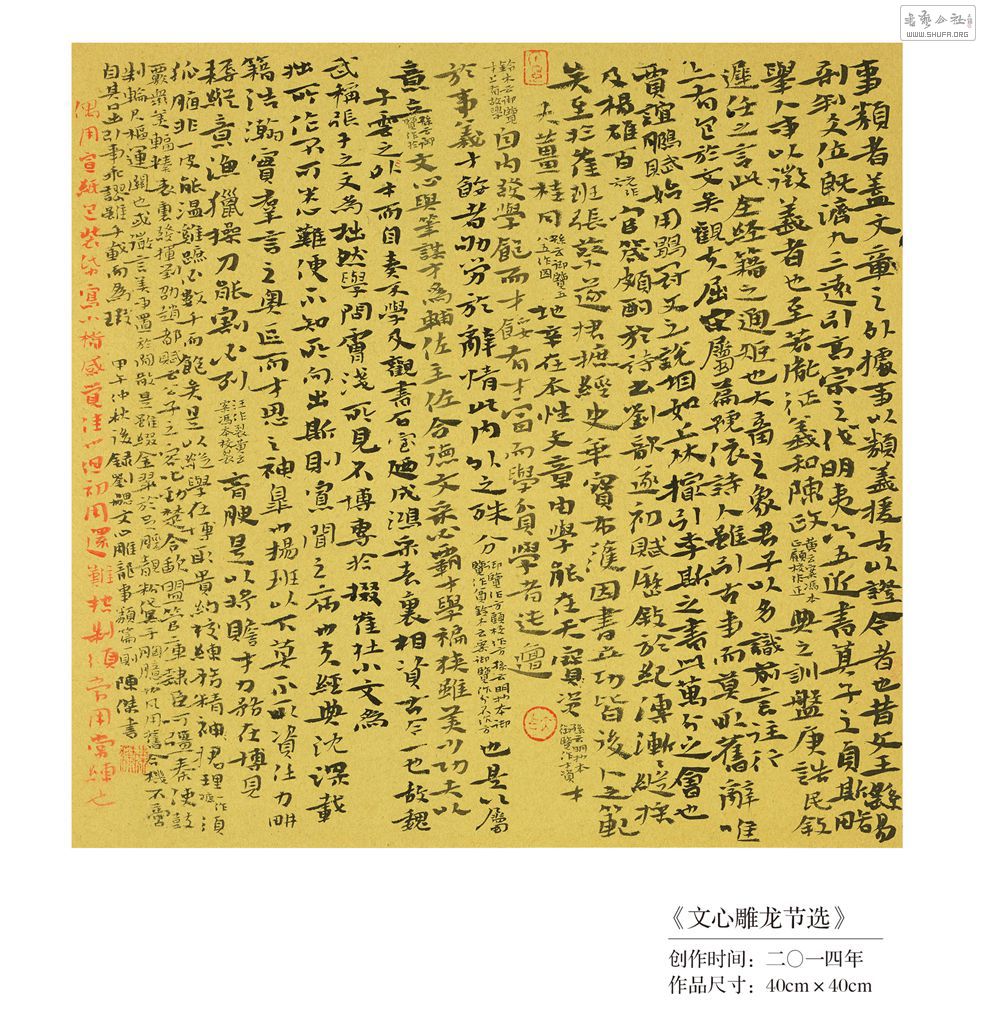 书艺公社
WWW.SHUFA.ORG
事類者蓋文章之外據事以類義援古以證今者也昔文王繇易
剖判爻位既濟九三遠引高宗之伐明夷六五近書箕子之貞斯略
舉人事以徵義者也至若胤征羲和陳政典之訓盤庚誥民敘
遲任之言此全經籍之通矩也大畜之象君子以多識前言往行
亦有包於文矣觀夫屈宋屬篇號依詩人雖引古事而莫取舊辭唯
賈誼鵩賦始用鶡冠之說相如上林撮引李斯之書此萬分之會也
及楊雄百官箴頗酌於詩書劉歆遂初賦歷敘於紀傳漸漸綜採
矣至於崔班張蔡遂捃摭經史華實布濩因書立功皆後人之範
夫薑桂同地辛在本性文章由學能在天資才
自內發學飽而才餒有才富而學貧學者迍邅
於事義才餒者劬勞於辭情此內外之殊分也是以屬
意立文心與筆謀才為輔佐主佐合德文采必霸才學褊狹雖美少功夫以
子雲之才而自奏不學及觀書石室迺成鴻采表裏相資古今一也故魏
武稱張子之文為拙然學問膚淺所見不博專拾掇崔杜小文為
拙所作不可悉難便不知所出斯則寡聞之病也夫經典沈深載
籍浩瀚實羣言之奧區而才思之神皋也揚班以下莫不取資任力耕
耨縱意漁獵操刀能割必列膏腴是以將贍才力務在博見
狐腋非一皮能溫雞蹠必數千而飽矣是以綜學在博取貴約校練務精捃理須
覈眾美輻輳表裏發揮劉劭趙都賦云公子之客叱勁楚令歃盟管庫隸臣呵強秦使鼓
制輪尺樞運關也或微言美事置於閑散是雖綴金翠於足脛靚粉黛於胸臆也凡用舊合機不啻
自其口出引事乖謬雖千載而為瑕 甲午仲秋後錄劉勰文心雕龍事類篇一則陳傑書
偶用宣紙包裝袋寫小楷感覺佳 初用還難控制須常用常練也
《文心雕龙节选》
创作时间：二〇一四年
作品尺寸：40cm×40cm